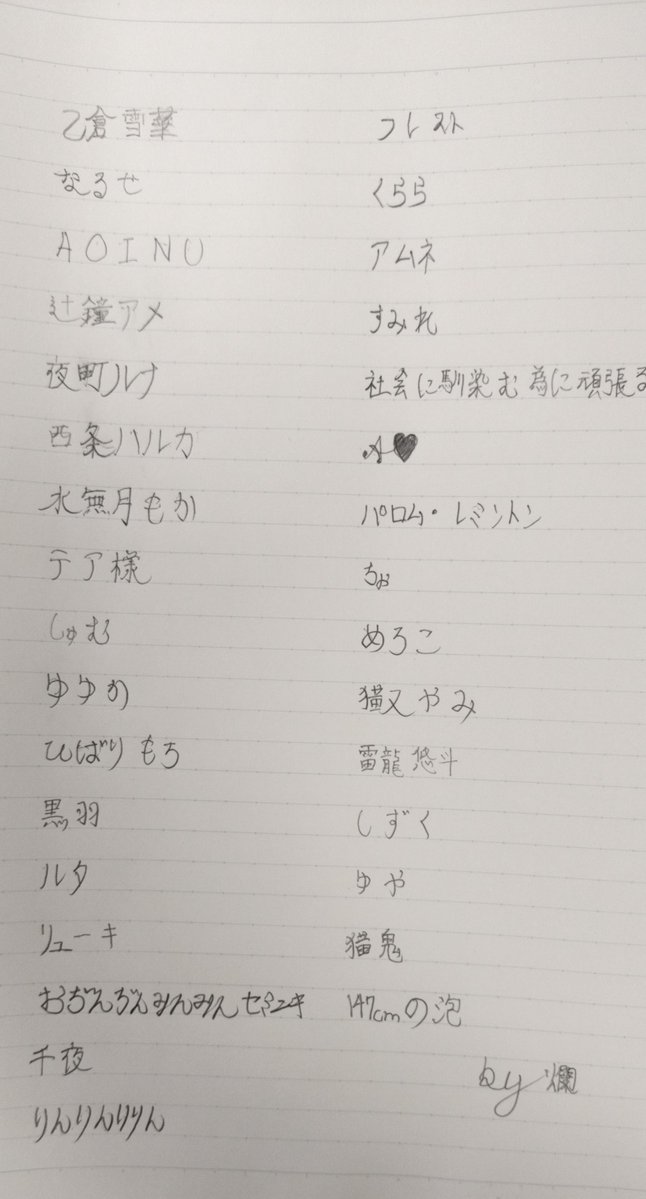 乙倉雪華
なるせ
AOINU
辻鐘アメ
夜町ルナ
西条ハルカ
水無月もか
テア様
しゅむ
ゆゆか
ひばりもち
黒羽
ルタ
リューキ
おぢんぢんみんみん
千夜
りんりんりりん
フレスト
くらら
アムネ
すみれ
社会に馴染む為に頑張る
A♥
パロム・レミントン
ちぉ
めろこ
猫又やみ
雷龍悠斗
しずく
ゆや
猫鬼
147cmの泡
by 爛